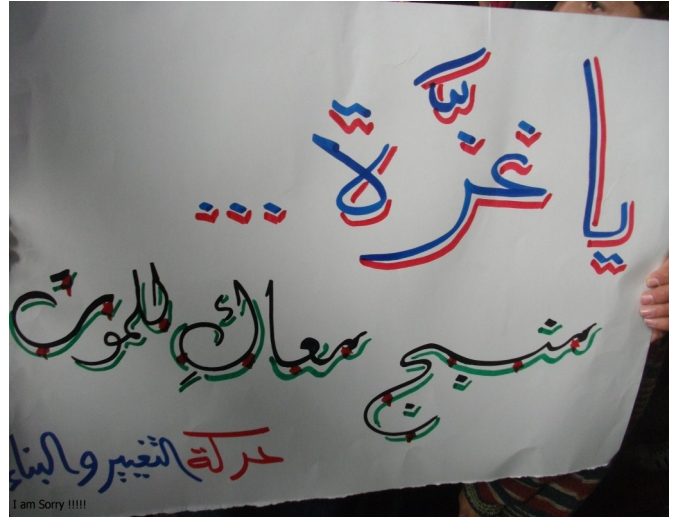 يا غزَّة ...
منبج معاكِ للموت
حركة التغيير والبناء
I am Sorry !!!!!